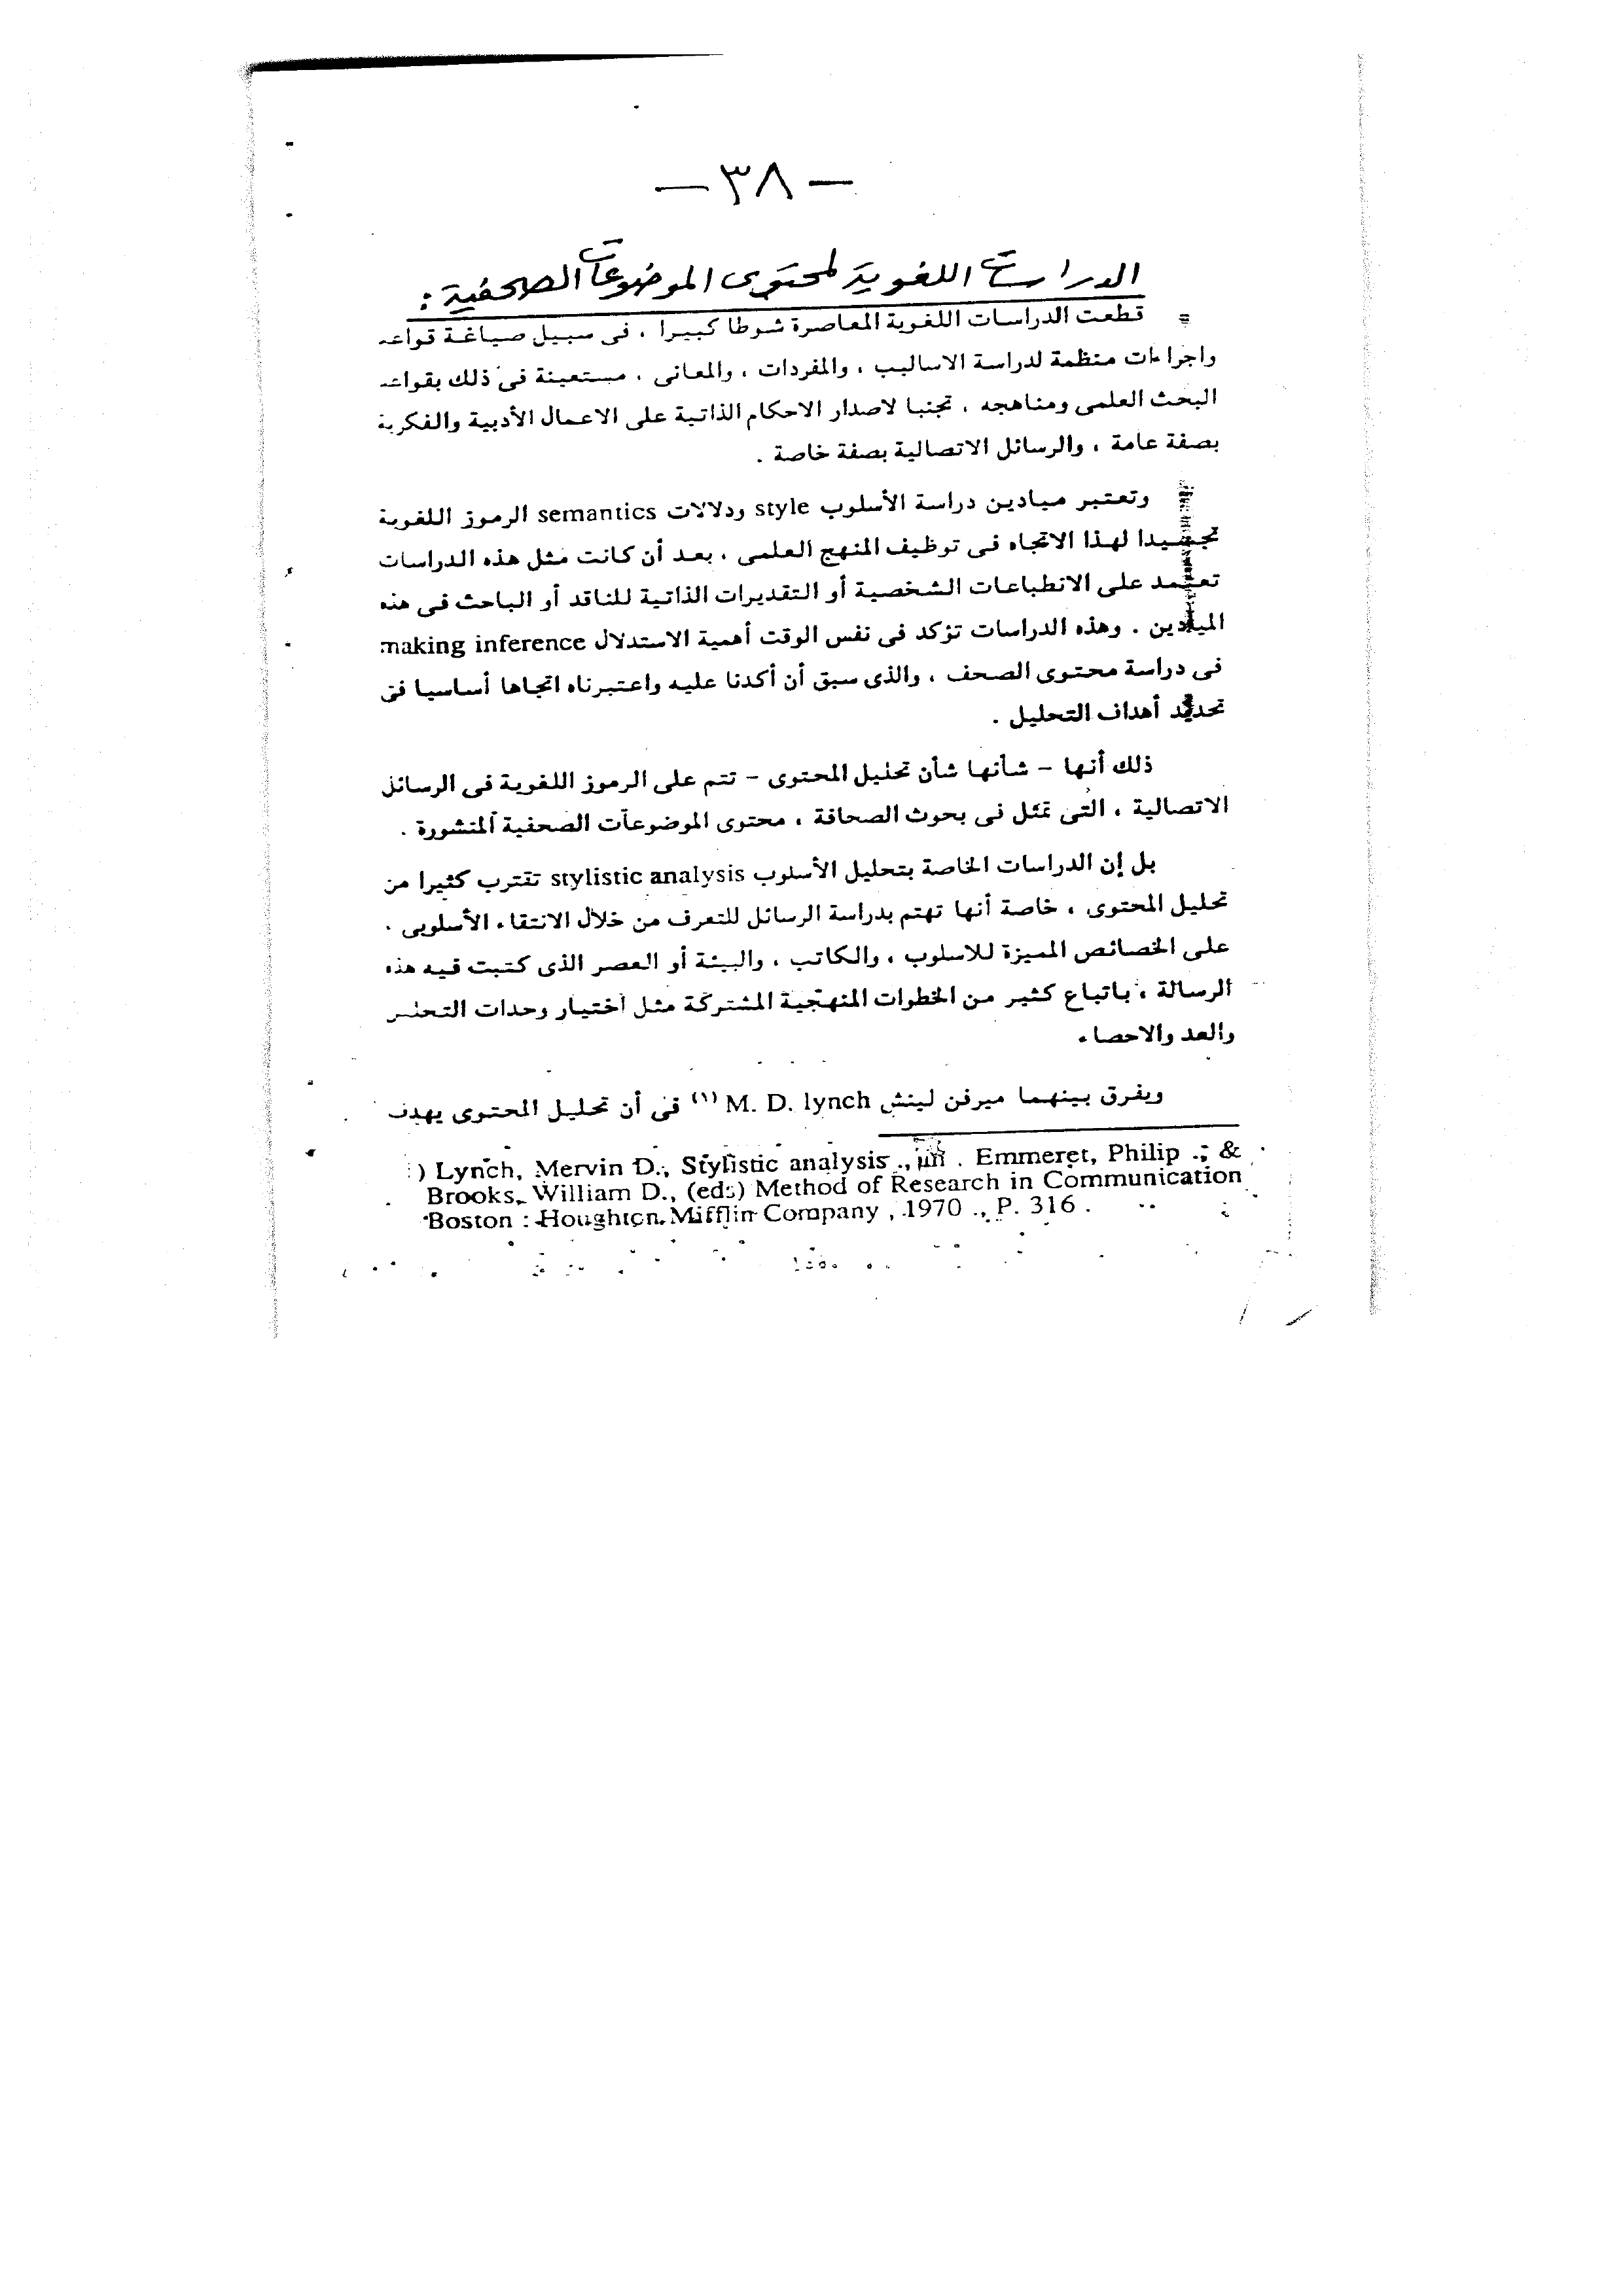 - ٣٨ -
الدراسات اللغوية لمحتوى الموضوعات الصحفية :
قطعت الدراسات اللغوية المعاصرة شوطا كبيرا ، فى سبيل صياغة قواعد
واجراءات منظمة لدراسة الاساليب ، والمفردات ، والمعانى ، مستعينة فى ذلك بقواعد
البحث العلمى ومناهجه ، تجنبا لاصدار الاحكام الذاتية على الاعمال الأدبية والفكرية
بصفة عامة ، والرسائل الاتصالية بصفة خاصة .
وتعتبر ميادين دراسة الأسلوب style ودلالات semantics الرموز اللغوية
تجسيدا لهذا الاتجاه فى توظيف المنهج العلمى ، بعد أن كانت مثل هذه الدراسات
تعتمد على الانطباعات الشخصية أو التقديرات الذاتية للناقد أو الباحث فى هذه
الميادين . وهذه الدراسات تؤكد فى نفس الوقت أهمية الاستدلال making inference
فى دراسة محتوى الصحف ، والذى سبق أن أكدنا عليه واعتبرناه اتجاها أساسيا فى
تحديد أهداف التحليل .
ذلك أنها - شأنها شأن تحليل المحتوى - تتم على الرموز اللغوية فى الرسائل
الاتصالية ، التى تمثل فى بحوث الصحافة ، محتوى الموضوعات الصحفية المنشورة .
بل إن الدراسات الخاصة بتحليل الأسلوب stylistic analysis تقترب كثيرا من
تحليل المحتوى ، خاصة أنها تهتم بدراسة الرسائل للتعرف من خلال الانتقاء الأسلوبى .
على الخصائص المميزة للاسلوب ، والكاتب ، والبيئة أو العصر الذى كتبت فيه هذه
الرسالة ، باتباع كثير من الخطوات المنهجية المشتركة مثل اختيار وحدات التحليل
والعد والاحصاء
ويفرق بينهما ميرفن لينش M. D. lynch (١) فى أن تحليل المحتوى يهدف
) Lynch, Mervin D., Stylistic analysis ., in . Emmeret, Philip .; &
Brooks, William D., (eds) Method of Research in Communication
Boston : Houghton Mifflin Company , 1970 ., P. 316 .